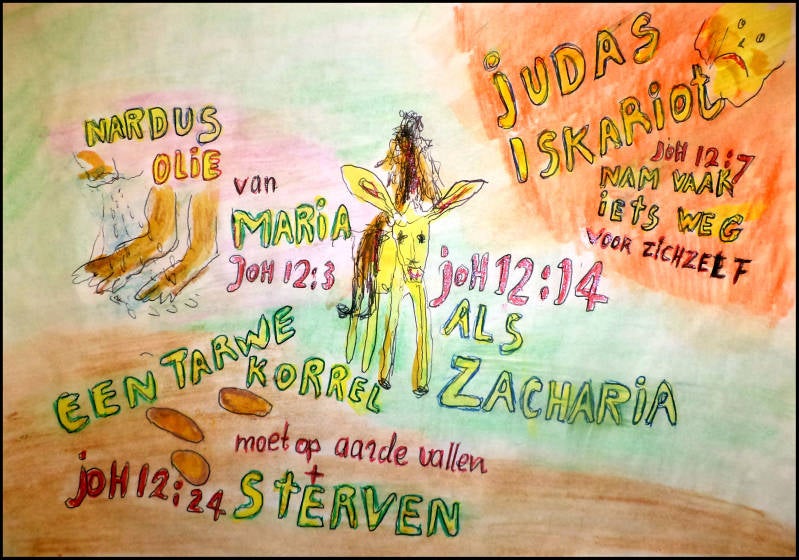 NARDUS
OLIE
van
MARiA
JOH 12:3
jUDAS
ISKARiot
JOH 12:7
NAM VAAK
iEtS WEG
VOOR ZICHZELF
jOH12:14
ALS
ZACHARiA
EEN TARWE
KORREL
moet op aarde vallen
+
jOH12:24 StERVEN